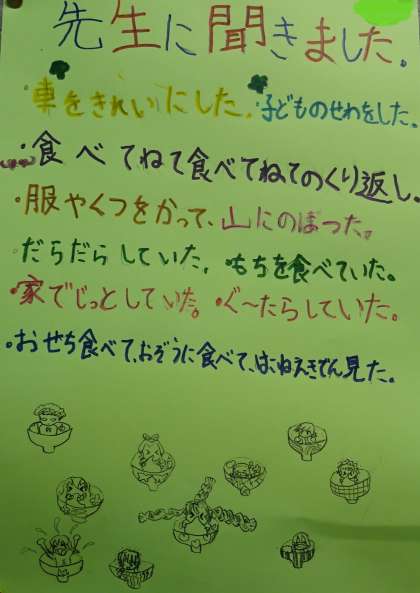 先生に聞きました。
・車をきれいにした。・子どものせわをした。
・食べてねて食べてねてのくり返し。
・服やくつをかって、山にのぼった。
・だらだらしていた。・もちを食べていた。
・家でじっとしていた。・ぐ〜たらしていた。
・おせち食べて、おぞうに食べて、はこねえきでん見た。